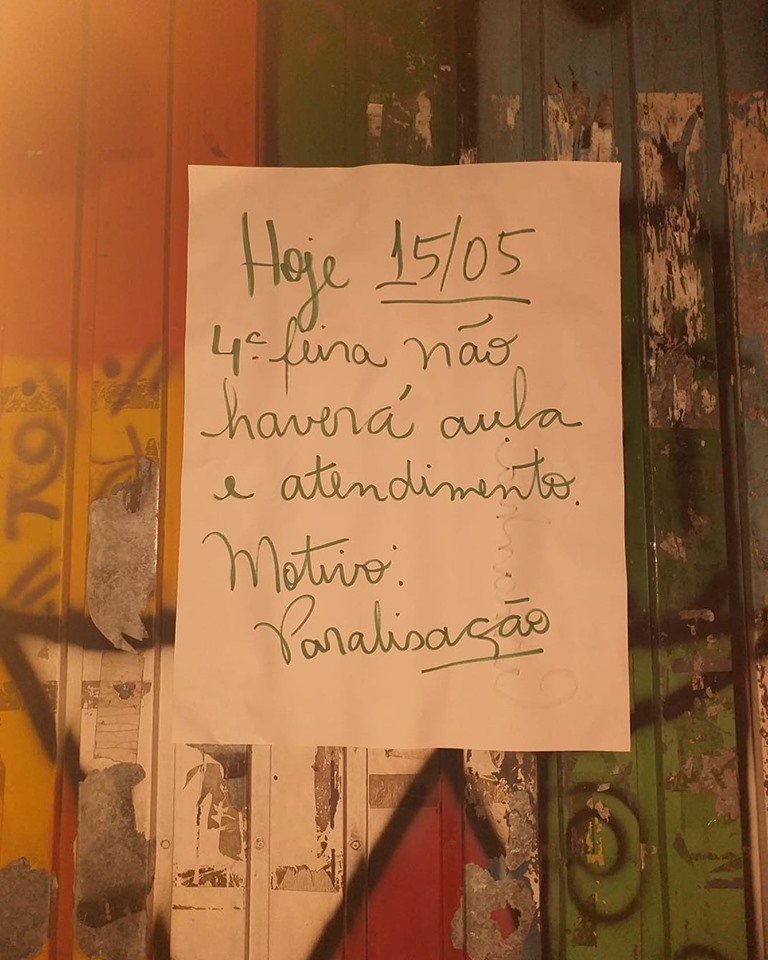 Hoje 15/05
4ª feira não
haverá aula
e atendimento.
Motivo:
Paralisação